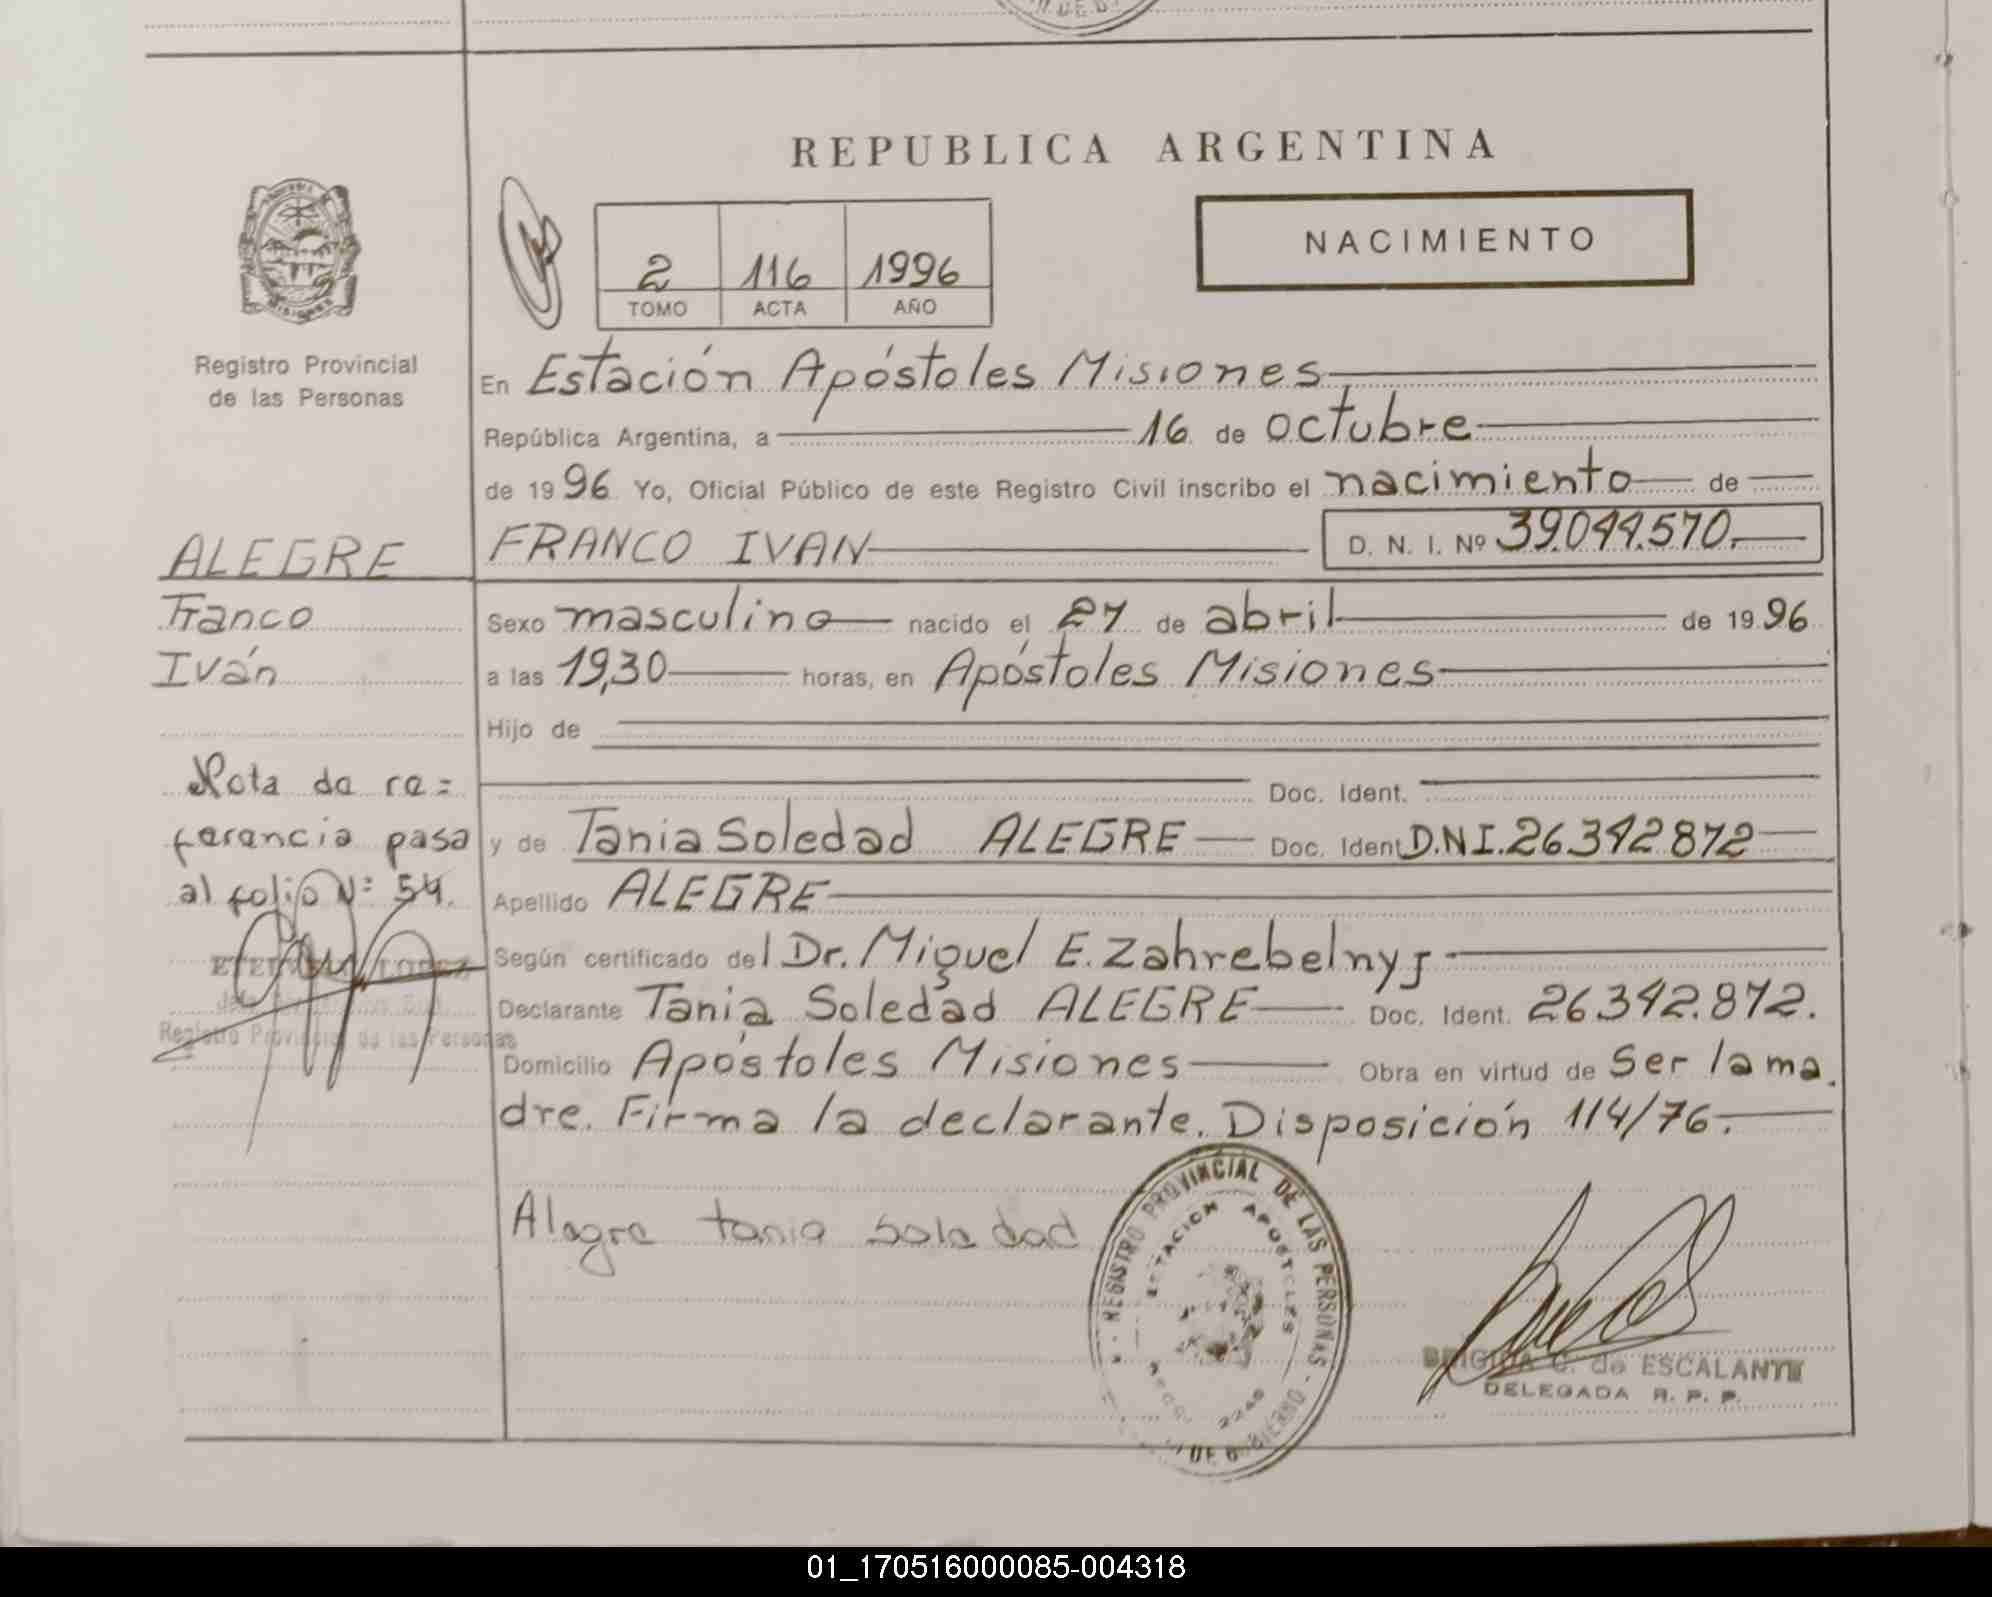 REPUBLICA ARGENTINA
NACIMIENTO
2 116 1996
TOMO ACTA AÑO
Registro Provincial
de las Personas
En Estación Apóstoles Misiones
República Argentina, a 16 de octubre
de 1996 Yo, Oficial Público de este Registro Civil inscribo el nacimiento de
FRANCO IVAN D. N. I. Nº 39.044.570.
ALEGRE
Franco
Iván
Sexo masculino nacido el 27 de abril de 1996
a las 19,30 horas, en Apóstoles Misiones
Hijo de
Doc. Ident.
y de Tania Soledad ALEGRE Doc. Ident D.N.I. 26.342.872
Apellido ALEGRE
Según certificado del Dr. Miguel E. Zahrebelnyj
Declarante Tania Soledad ALEGRE Doc. Ident. 26.342.872.
Domicilio Apóstoles Misiones Obra en virtud de Ser la ma.
dre. Firma la declarante. Disposición 114/76.
Nota de re=
ferencia pasa
al folio Nº 54.
LOPEZ
Registro Provincial de las Personas
Alegre tania soledad
REGISTRO PROVINCIAL DE LAS PERSONAS
ESTACION APOSTOLES
DE GOBIERNO
BRIGIDA C. de ESCALANTE
DELEGADA R. P. P.
01_170516000085-004318